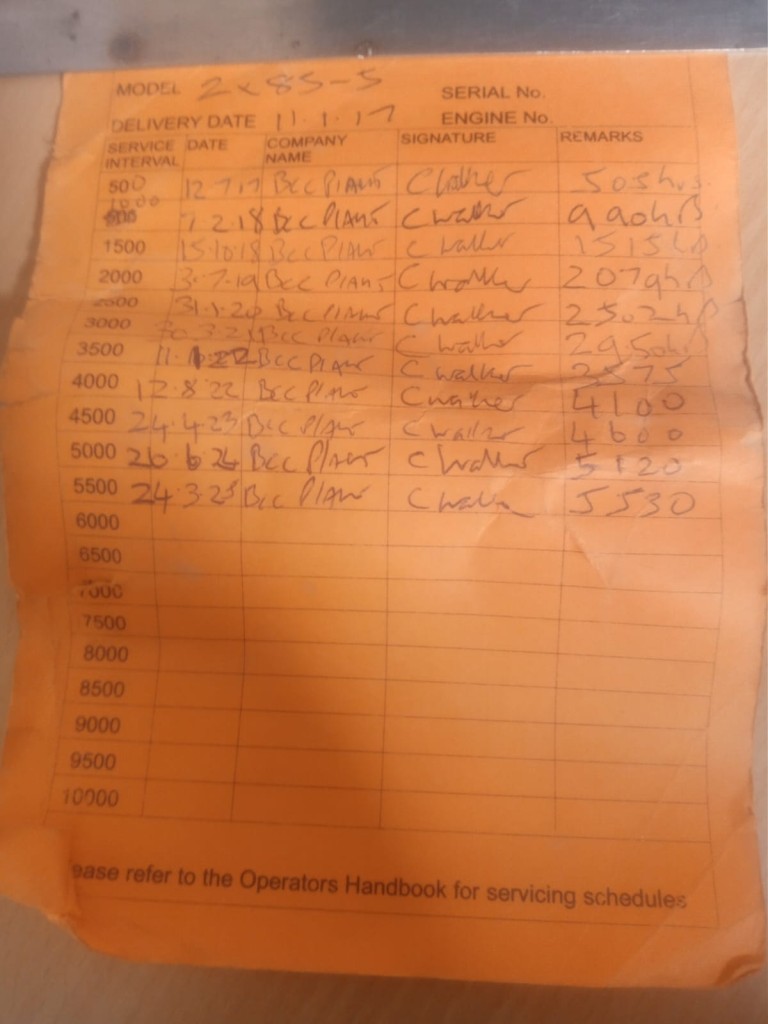 MODEL 2x85-5 SERIAL No.
DELIVERY DATE 11.1.17 ENGINE No.
SERVICE INTERVAL DATE COMPANY NAME SIGNATURE REMARKS
500 12 7 17 Bcc PlAnt C Walker 505hrs
1000 7 2 18 Bcc PlAnt C Walker 990hrs
1500 15.10.18 Bcc PlAnt C Walker 1515hrs
2000 3.7.19 Bcc PlAnt C Walker 2079hrs
2500 31.1.20 Bcc PlAnt C Walker 2502hrs
3000 30 3 21 Bcc PlAnt C Walker 2950hrs
3500 11.1.22 Bcc PlAnt C Walker 3575
4000 12.8.22 Bcc PlAnt C Walker 4100
4500 24.4.23 Bcc PlAnt C Walker 4600
5000 26 6 24 Bcc PlAnt C Walker 5120
5500 24.3.25 Bcc PlAnt C Walker 5530
6000
6500
7000
7500
8000
8500
9000
9500
10000
ease refer to the Operators Handbook for servicing schedules